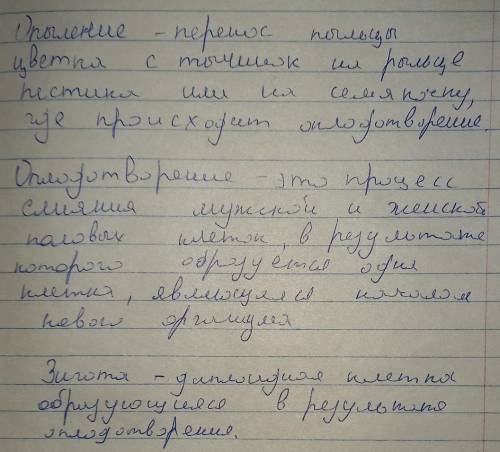 Опыление - перенос пыльцы
цветка с тычинок на рыльце
пестика или на семяпочку,
где происходит оплодотворение.
Оплодотворение - это процесс
слияния мужской и женской
половых клеток, в результате
которого образуется одна
клетка, являющаяся началом
нового организма
Зигота - диплоидная клетка
образующаяся в результате
оплодотворения.